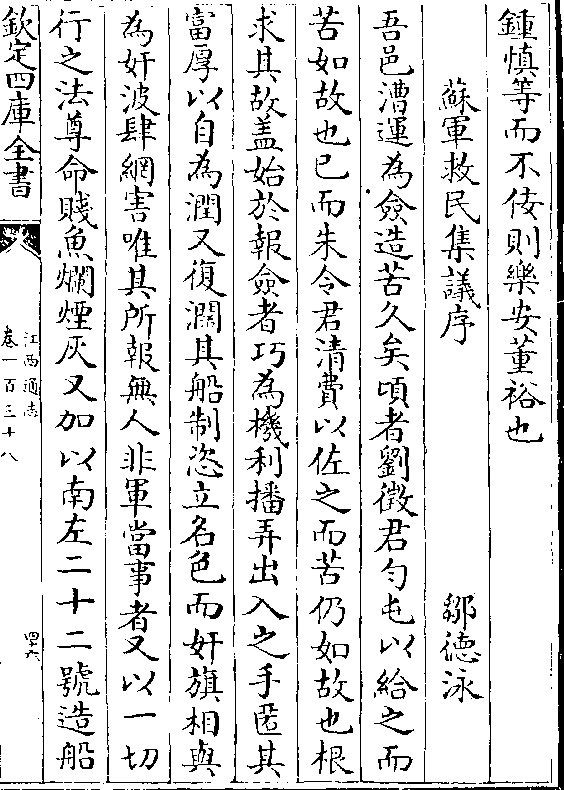 鍾慎等而不佞則樂安董裕也
蘇軍救民集議序 鄒德泳
吾邑漕運為僉造苦久矣頃者劉徵君勻屯以給之而
苦如故也已而朱令君清費以佐之而苦仍如故也根
求其故盖始於報僉者巧為機利播弄出入之手匿其
富厚以自為潤又復濶其船制恣立名色而奸旗相與
為奸波肆網害唯其所報無人非軍當事者又以一切
行之法尊命賤魚爛煙灰又加以南左二十二號造船
欽定四庫全書
江西通志
卷一百三十八
四六